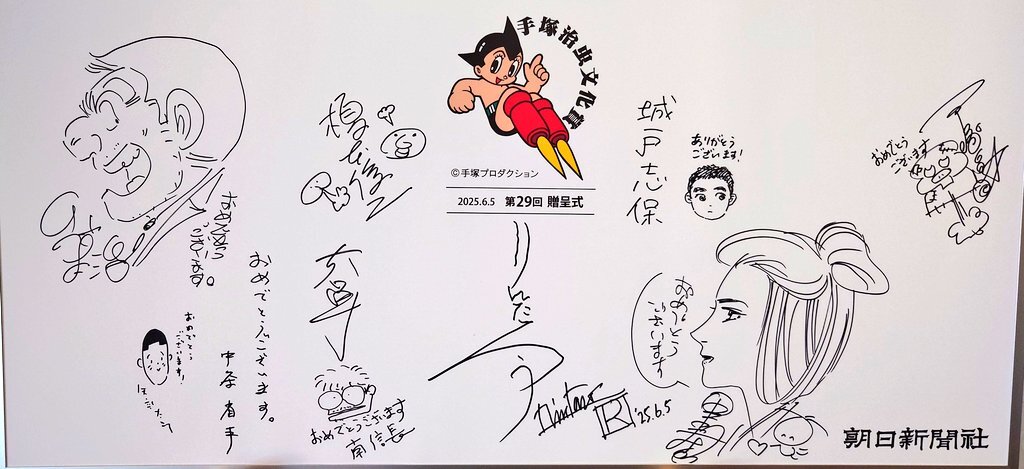 手塚治虫文化賞
©手塚プロダクション
2025.6.5 第29回 贈呈式
おめでとう
ございます。
おめでとうございます。
中条省平
おめでとう
ございます!
おめでとうございます
南信長
りんたろう
Rintaro
'25.6.5
城戸志保
ありがとう
ございます!
おめでとう
ございます
おめでとう
ございます
朝日新聞社